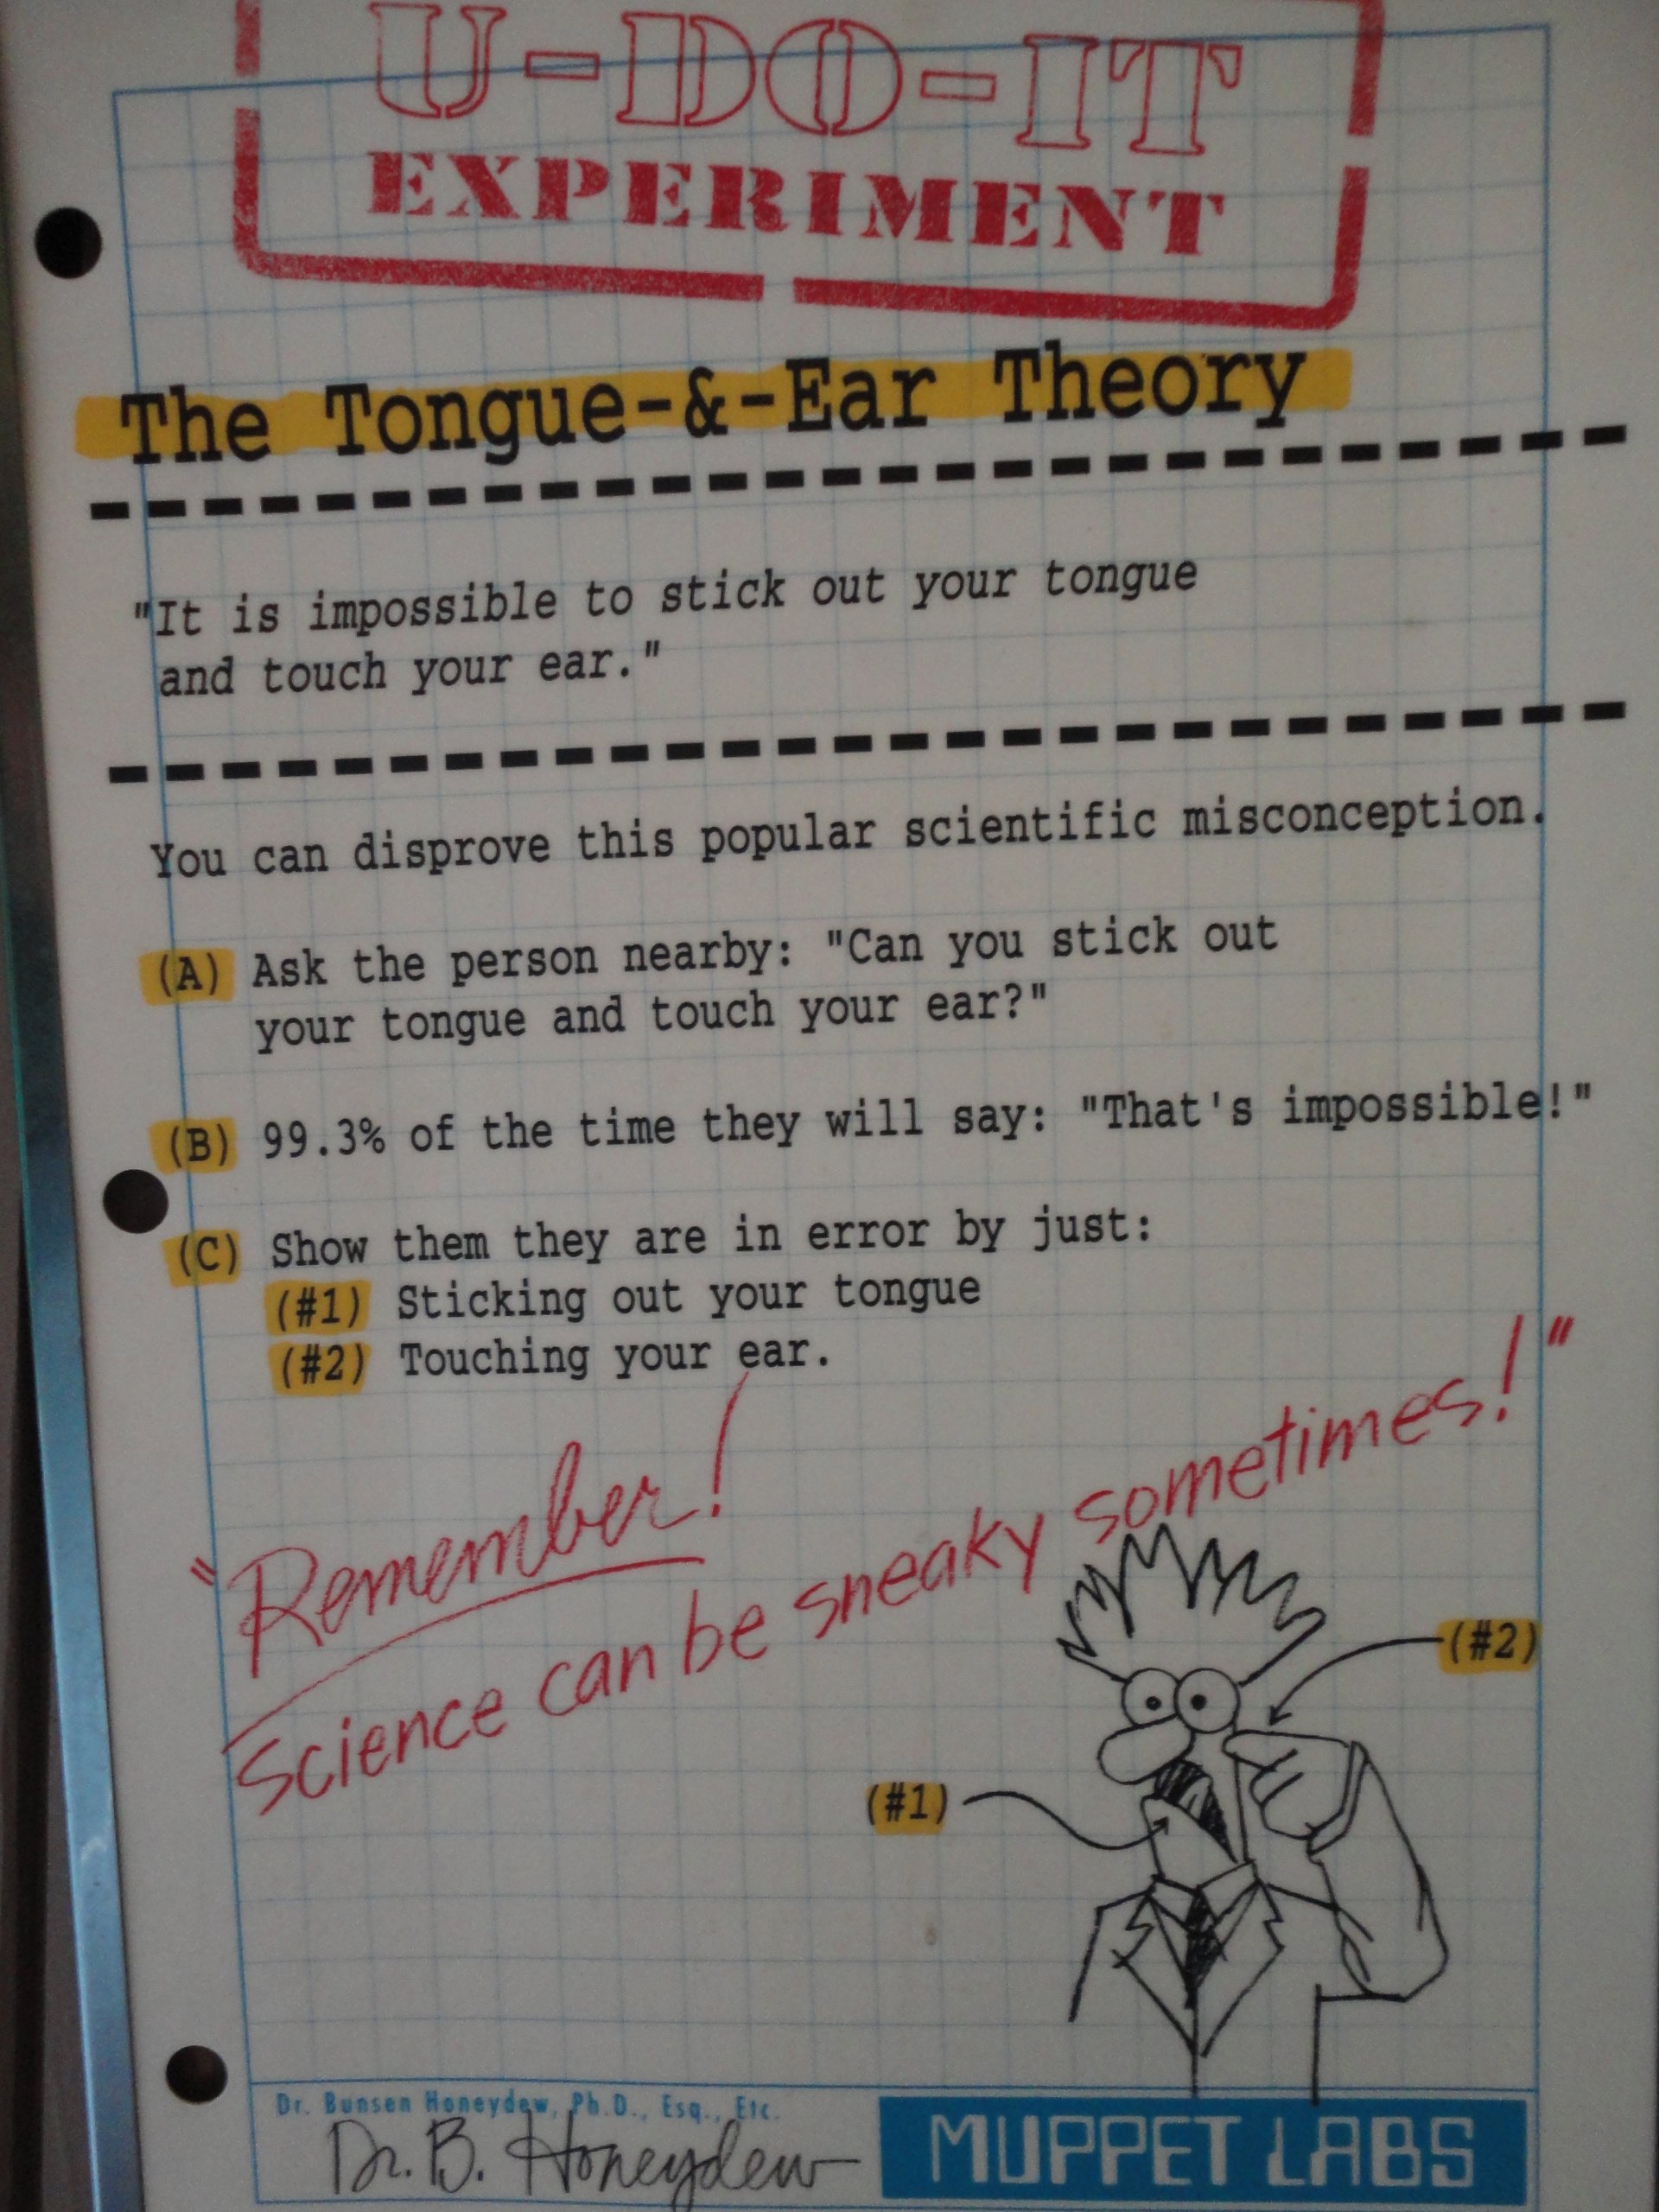 U-DO-IT
EXPERIMENT
The Tongue-&-Ear Theory
"It is impossible to stick out your tongue
and touch your ear."
You can disprove this popular scientific misconception.
(A) Ask the person nearby: "Can you stick out
your tongue and touch your ear?"
(B) 99.3% of the time they will say: "That's impossible!"
(C) Show them they are in error by just:
(#1) Sticking out your tongue
(#2) Touching your ear.
"Remember!
Science can be sneaky sometimes!"
(#2)
(#1)
Dr. Bunsen Honeydew, Ph.D., Esq., Etc.
Dr. B. Honeydew
MUPPET LABS